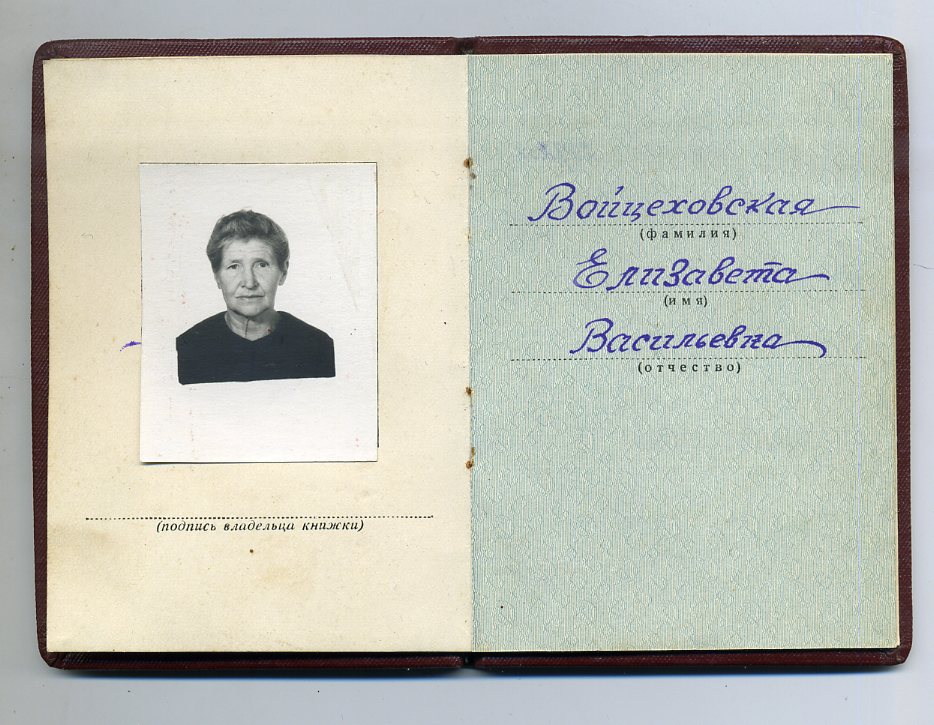 (подпись владельца книжки)
Войцеховская
(фамилия)
Елизавета
(имя)
Васильевна
(отчество)